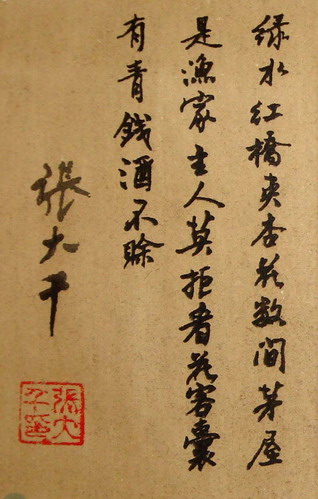 綠水紅橋夾杏花數間茅屋
是漁家主人莫拒看花客囊
有青錢酒不賒
張大千
張大千印